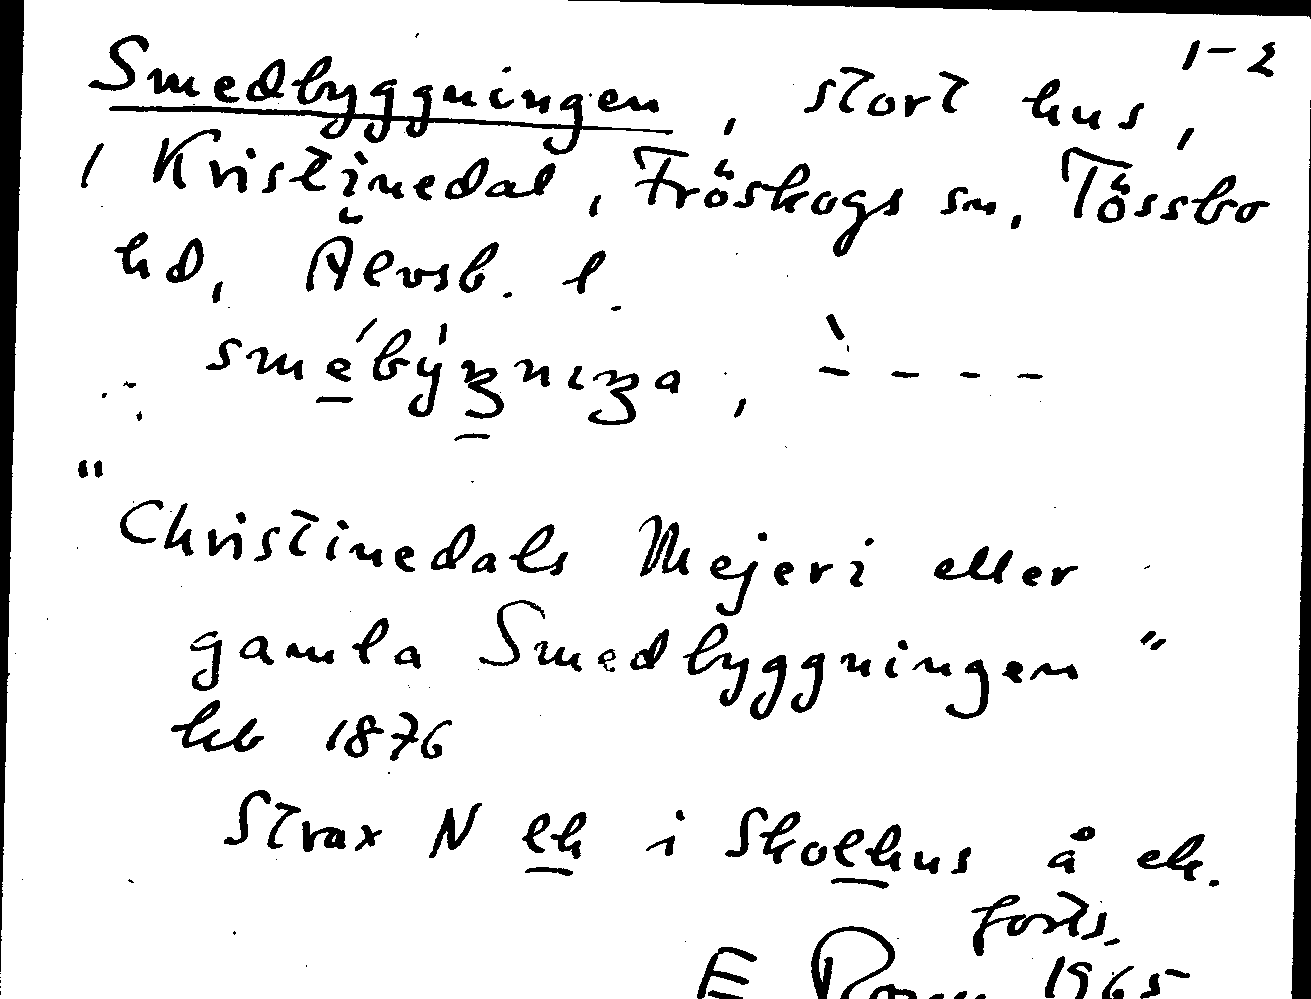 1-2
Smedbyggningen, stort hus,
i Kristinedal, Fröskogs sn, Tössbo
hd, Älvsb. l.
smébýʒnıʒa, `- - - -
"Christinedals Mejeri eller
gamla Smedbyggningen"
hb 1876
Strax N lh i Skolhus å ek.
forts.
E 1965